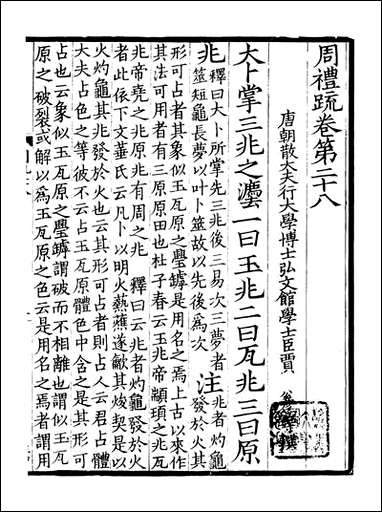 周禮疏卷第二十八
唐朝散大夫行大學博士弘文館學士臣賈
等撰
大卜掌三兆之灋一曰玉兆二曰瓦兆三曰原
兆
釋曰大卜所掌先三兆後三易次三夢者
筮短龜長夢以叶卜筮故以先後為次
注
兆者灼龜
發於火其
形可占者其象似玉瓦原之璺罅是用名之焉上古以來作
其法可用者有三原原田也杜子春云玉兆帝顓頊之兆瓦
兆帝堯之兆原兆有周之兆
釋曰云兆者灼龜發於火
者此依下文菙氏云凡卜以明火爇燋遂龡其焌契是以
火灼龜其兆發於火也云其形可占者則占人云君占體
大夫占色之等彼不云占玉瓦原體色中含之是其形可
占也云象似玉瓦原之璺罅謂破而不相離也謂似玉瓦
原之破裂或解以為玉瓦原之色云是用名之焉者謂用